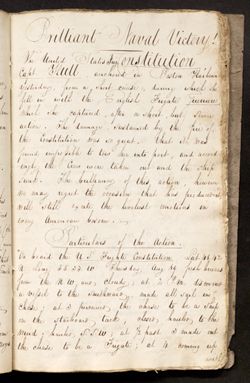 Brilliant Naval Victory!
The United States Ship Constitution
Capt Hull anchored in Boston Harbour
yesterday, from a short cruise, during which she
fell in with the English Frigate Guerriere
which she captured, after a short, but severe
action. The damage sustained by the fire of
the Constitution was so great, that it was
found impossible to tow her into port, and accord
ingly the Crew were taken out and the ship
sunk. The brilliancy of this action, however
we may regret the occasion that has produced
will still excite the liveliest emotions in
every American bosom.
Particulars of the Action.
On board the U S Frigate Constitution Lat 41 42
N Long 55 33 W Thursday, Aug 19 fresh breeze
from the N W. and cloudy; at 2 P.M. discovered
a vessel to the southward, made all sail in
chase; at 3 perceived, the chase to be a ship
on the starboard tack, close hauled to the
wind; hauled S.S.W.; at ½ past 3 made out
the chase to be a Frigate; at 4 coming up